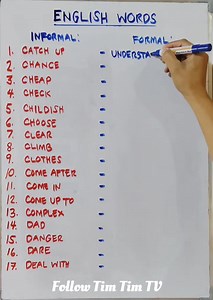 ENGLISH WORDS
INFORMAL: FORMAL:
1. CATCH UP - UNDERSTA
2. CHANCE -
3. CHEAP -
4. CHECK -
5. CHILDISH -
6. CHOOSE -
7. CLEAR -
8. CLIMB -
9. CLOTHES -
10. COME AFTER -
11. COME IN -
12. COME UP TO -
13. COMPLEX -
14. DAD -
15. DANGER -
16. DARE -
17. DEAL WITH -
Follow Tim Tim TV